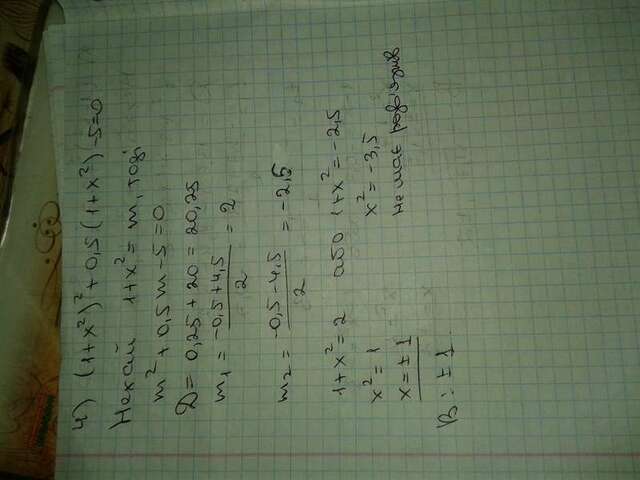 4) (1+x²)² + 0,5(1+x²) - 5=0
Нехай 1+x² = m, тоді
m² + 0,5m - 5 = 0
D = 0,25 + 20 = 20,25
m₁ = (-0,5+4,5)/2 = 2
m₂ = (-0,5-4,5)/2 = -2,5
1+x² = 2 або 1+x² = -2,5
x² = 1 x² = -3,5
x = ±1 не має розв'язків
В: ±1.